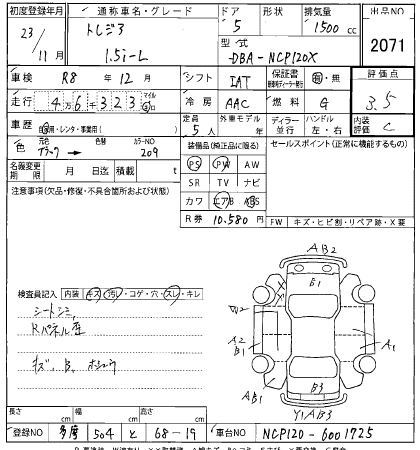 初度登録年月
23/11月
通称車名・グレード
トレジア
1.5i-L
ドア
5
形状
排気量
1500 cc
型式
DBA-NCP120X
出品NO
2071
車検 R8年12月
シフト IAT
保証書 有・無
評価点
3.5
走行 4万6千323 マイル
冷房 AAC
燃料 G
車歴 自家用・レンタ・事業用( )
定員 5人
外車モデル 年
ディーラー 並行
ハンドル 左・右
内装評価 C
色 元色 ブラック 色替 カラーNO 209
装備品(純正品に限る)
セールスポイント(正常に機能するもの)
PS PW AW
SR TV ナビ
カワ エアB ABS
R券 10.580円
名義変更期限 月 日迄 積載 t
注意事項(欠品・修復・不具合箇所および状態)
FW キズ・ヒビ割・リペア跡・X要
検査員記入 内装 キズ・汚レ・コゲ・穴・スレ・キレ
シートシミ
Rパネル歪
キズ、B、
AB2
B1
W2
A2
B1
A1
AB1
B3
Y1AB3
長さ cm
幅 cm
高さ cm
登録NO 多摩 504 と 68-19
車台NO NCP120-6001725